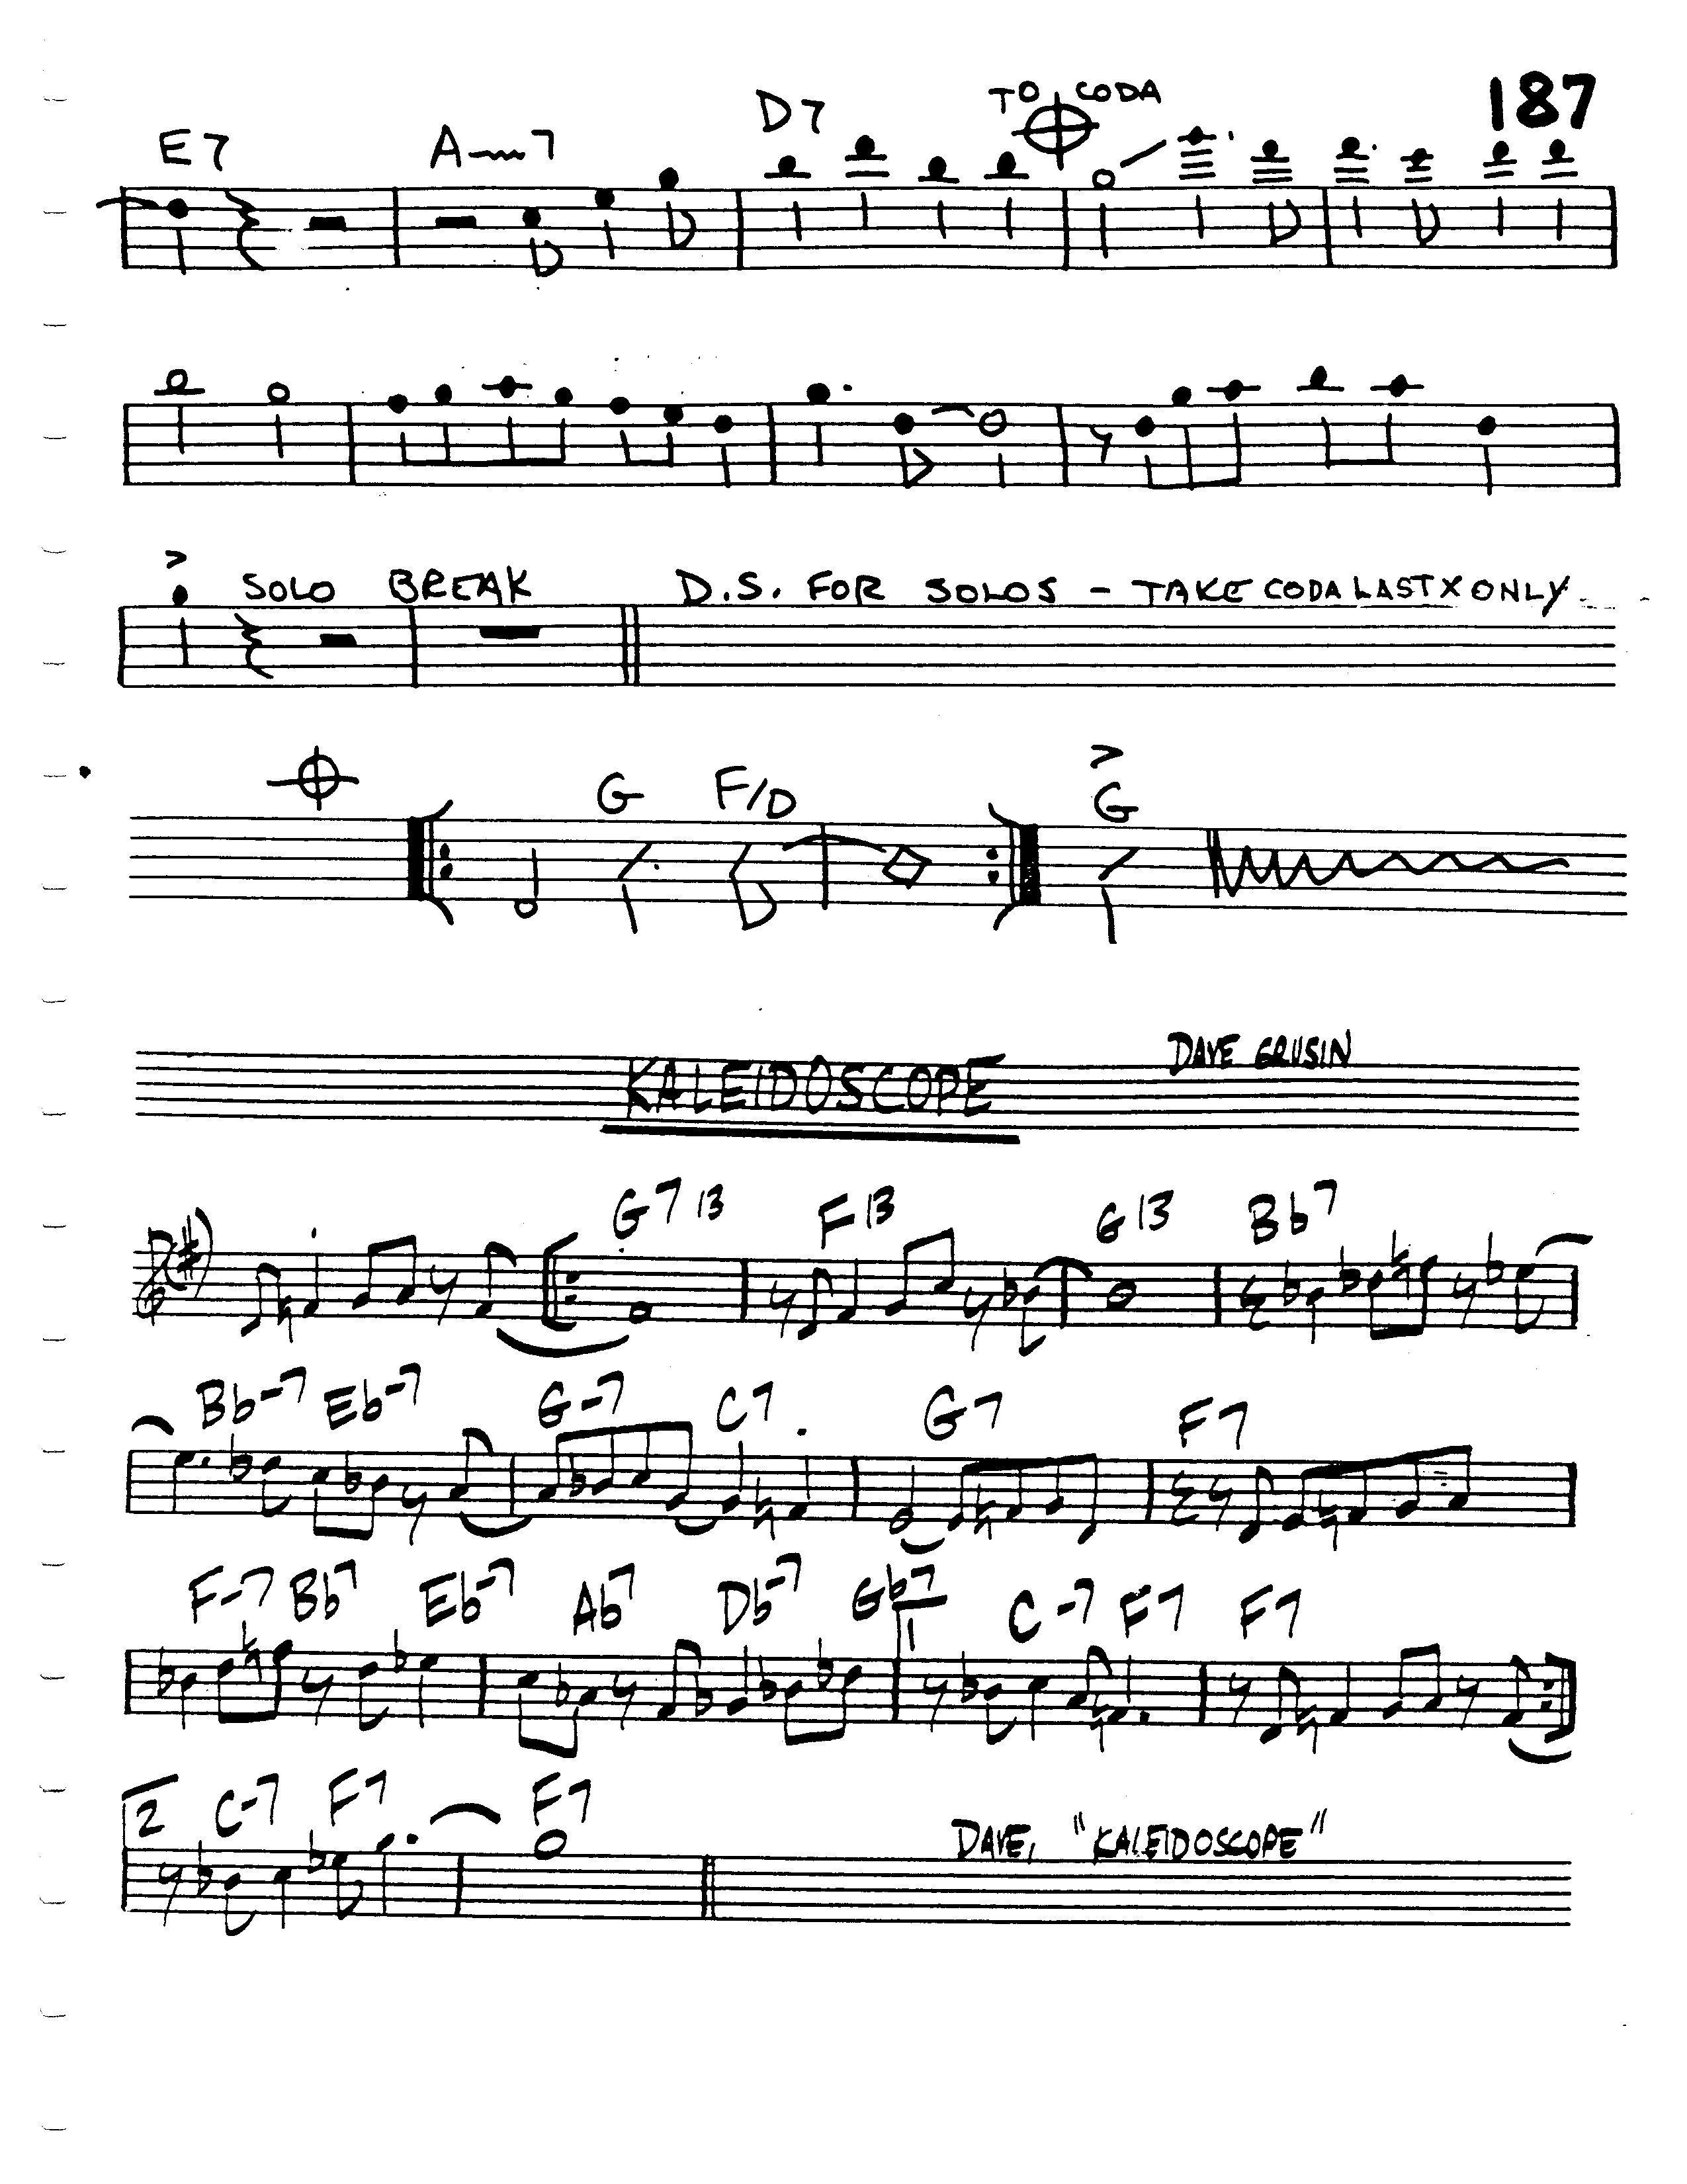 187
TO CODA
E7 A-7 D7
SOLO BREAK D.S. FOR SOLOS - TAKE CODA LAST X ONLY
G F/D G
KALEIDOSCOPE DAVE GRUSIN
G7 13 F13 G13 Bb7
Bb-7 Eb-7 G-7 C7 G7 F7
F-7 Bb7 Eb-7 Ab7 Db-7 Gb7 1 C-7 F7 F7
2 C-7 F7 F7
DAVE, "KALEIDOSCOPE"